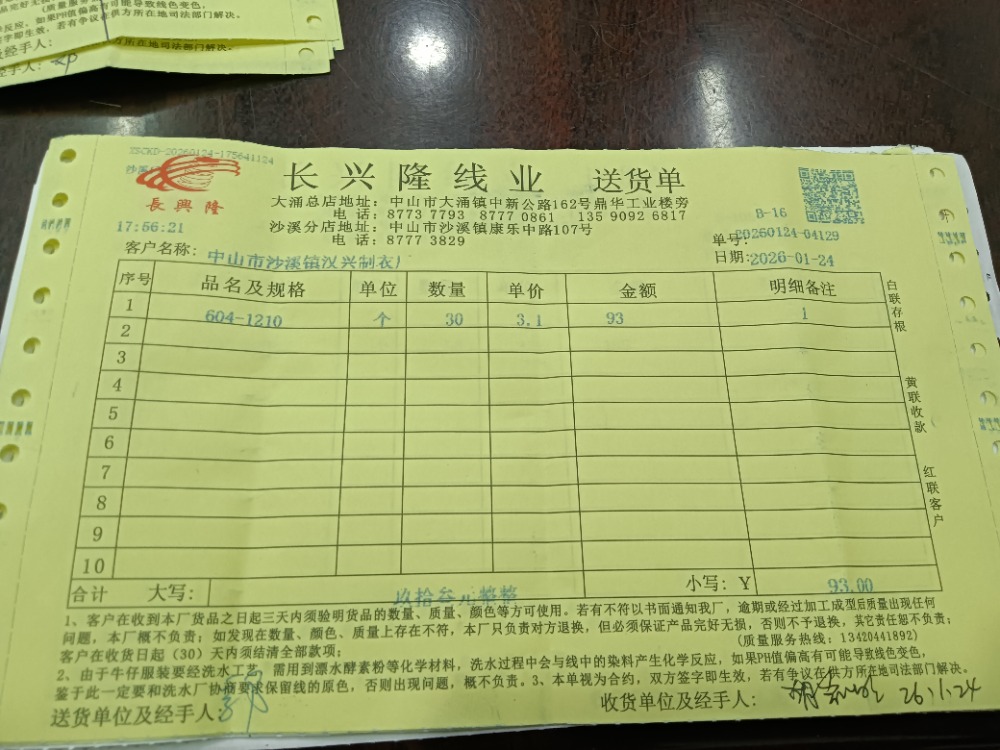 (质量服务
反应，如果PH值偏高有可能导致线色变色，
字即生效，若有争议在供方所在地司法部门解决。
经手人：
方所在地司法部门解决。
经手人：
XSCKD-20260124-175641124
沙溪
長興隆
长兴隆线业 送货单
大涌总店地址：中山市大涌镇中新公路162号鼎华工业楼旁
电话：8773 7793 8777 0861 135 9092 6817
沙溪分店地址：中山市沙溪镇康乐中路107号
电话：8777 3829
B-16
17:56:21
单号：20260124-04129
客户名称：中山市沙溪镇汉兴制衣厂
日期：2026-01-24
序号 品名及规格 单位 数量 单价 金额 明细备注
1 604-1210 个 30 3.1 93 1
2
3
4
5
6
7
8
9
10
合计 大写： 玖拾叁元整整 小写：￥ 93.00
白联存根
黄联收款
红联客户
1、客户在收到本厂货品之日起三天内须验明货品的数量、质量、颜色等方可使用。若有不符以书面通知我厂，逾期或经过加工成型后质量出现任何
问题，本厂概不负责；如发现在数量、颜色、质量上存在不符，本厂只负责对方退换，但必须保证产品完好无损，否则不予退换，其它责任恕不负责；
客户在收货日起（30）天内须结清全部款项；
(质量服务热线：13420441892)
2、由于牛仔服装要经洗水工艺，需用到漂水酵素粉等化学材料，洗水过程中会与线中的染料产生化学反应，如果PH值偏高有可能导致线色变色，
鉴于此一定要和洗水厂协商要求保留线的原色，否则出现问题，概不负责。3、本单视为合约，双方签字即生效，若有争议在供方所在地司法部门解决。
送货单位及经手人：
收货单位及经手人： 26.1.24